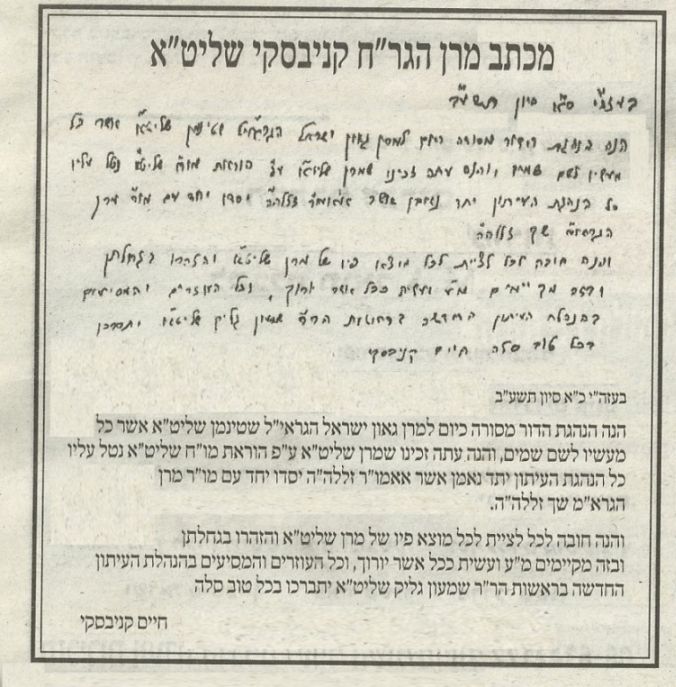 מכתב מרן הגר"ח קניבסקי שליט"א
בעזה"י כ"א סיון תשע"ב
הנה הנהגת הדור מסורה כיום למרן גאון ישראל הגראי"ל שטינמן שליט"א אשר כל
מעשיו לשם שמים, והנה עתה זכינו שמרן שליט"א ע"פ הוראת מו"ח שליט"א נטל עליו
כל הנהגת העיתון יתד נאמן אשר אאמו"ר זללה"ה יסדו יחד עם מו"ר מרן
הגרא"מ שך זללה"ה
והנה חובה לכל לציית לכל מוצא פיו של מרן שליט"א והזהרו בגחלתן
ובזה מקיימים מ"ע ועשית ככל אשר יורוך, וכל העוזרים והמסיעים
בהנהלת העיתון החדשה בראשות הר"ר שמעון גליק שליט"א יתברכו
בכל טוב סלה חיים קניבסקי
בעזה"י כ"א סיון תשע"ב
הנה הנהגת הדור מסורה כיום למרן גאון ישראל הגראי"ל שטינמן שליט"א אשר כל
מעשיו לשם שמים, והנה עתה זכינו שמרן שליט"א ע"פ הוראת מו"ח שליט"א נטל עליו
כל הנהגת העיתון יתד נאמן אשר אאמו"ר זללה"ה יסדו יחד עם מו"ר מרן
הגרא"מ שך זללה"ה.
והנה חובה לכל לציית לכל מוצא פיו של מרן שליט"א והזהרו בגחלתן
ובזה מקיימים מ"ע ועשית ככל אשר יורוך, וכל העוזרים והמסיעים בהנהלת העיתון
החדשה בראשות הר"ר שמעון גליק שליט"א יתברכו בכל טוב סלה
חיים קניבסקי